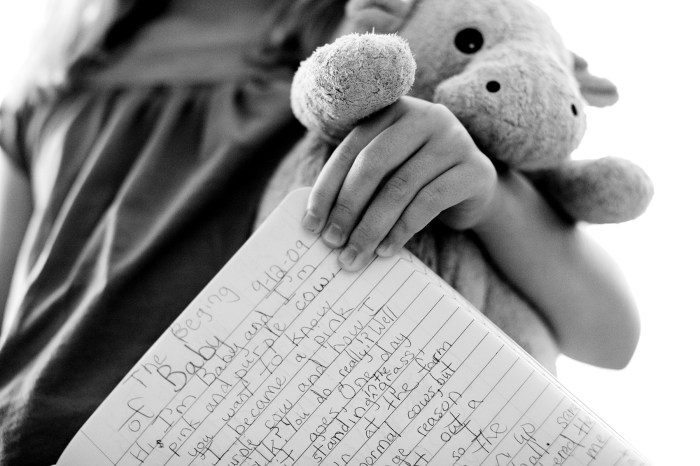 The Beging 9-12-09
of Baby
Hi, I'm Baby and I'm
pink and purple cow,
you want to know
I became a pink
cow and how I
You do, really? Well
goes, One day
standing in the grass
at the farm
normal cows, but
reason
out a
so the
go
that. So